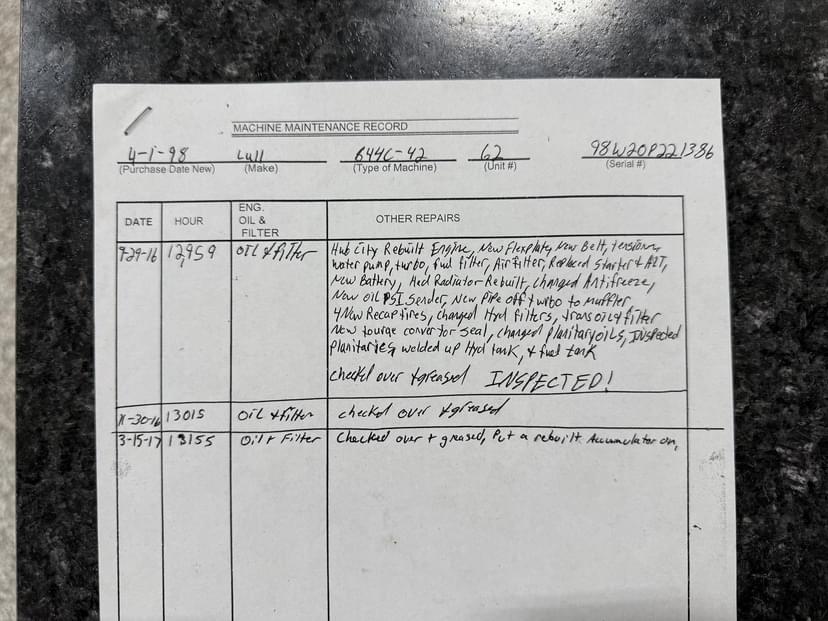 MACHINE MAINTENANCE RECORD
4-1-98 Lull 644C-42 62 98W20P221386
(Purchase Date New) (Make) (Type of Machine) (Unit #) (Serial #)
DATE HOUR ENG. OIL & FILTER OTHER REPAIRS
9-29-16 12,959 OIL & filter Hub City Rebuilt Engine, New Flexplate, New Belt, tension,
water pump, turbo, fuel filter, Air filter, Replaced Starter & ALT,
New Battery, Had Radiator Rebuilt, changed Antifreeze,
New oil PSI Sender, New Pipe off turbo to Muffler
4 New Recap tires, changed Hyd filters, trans oil & filter
New tourge convertor seal, changed planitary oils, INSpected
planitaries, welded up Hyd tank, & fuel tank
checkd over & greased INSPECTED!
11-30-16 13015 OIL & filter checked over & greased
3-15-17 13155 Oil + Filter Checked over + greased, Put a rebuilt Accumulator on,